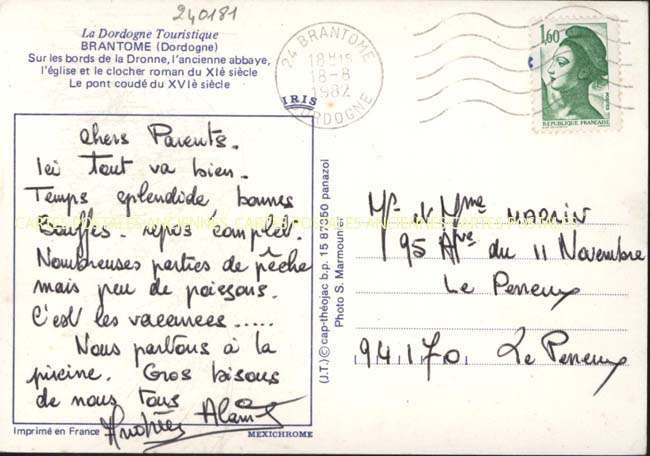 240181
La Dordogne Touristique
BRANTOME (Dordogne)
Sur les bords de la Dronne, l'ancienne abbaye,
l'église et le clocher roman du XIè siècle
Le pont coudé du XVIè siècle
24 BRANTOME
18H15
18-8
1982
DORDOGNE
1,60
POSTES
REPUBLIQUE FRANÇAISE
IRIS
chers Parents.
Ici Tout va bien.
Temps splendide, bonnes
Bouffes - repos complet.
Nombreuses parties de pêche
mais peu de poissons.
C'est les vacances .....
Nous partons à la
piscine. Gros bisous
de nous tous
Andrée Alain
Imprimé en France
MEXICHROME
(J.T.) © cap-théojac b.p. 15 87350 panazol
Photo S. Marmounier
CARTES POSTALES ANCIENNES CARTES POSTALES ANCIENNES CARTES POSTALES ANCIENNES
Mr & Mme
95 Ave du 11 Novembre
Le Perreux
94170 Le Perreux